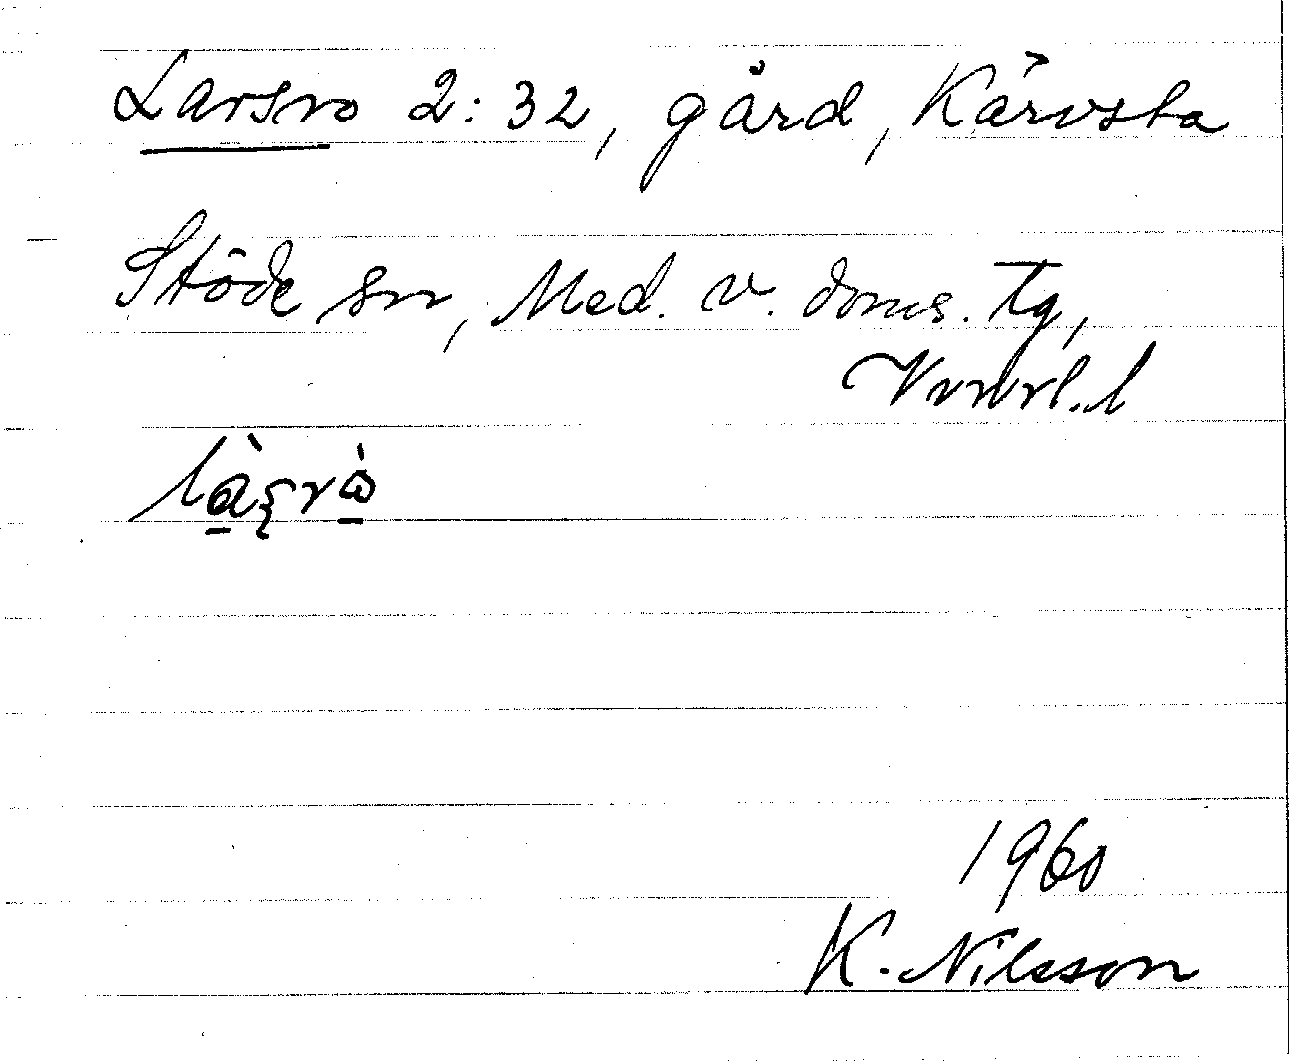 Larsro 2:32, gård, Kärvsta
Stöde sn, Med. v. doms. Tg,
Vvnrl. l
1960
K. Nilsson